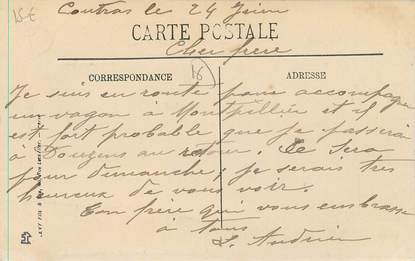 15€
Coutras le 24 Juin
CARTE POSTALE
Cher frère
CORRESPONDANCE
18
ADRESSE
Je suis en route pour accompagner
un wagon à Montpellier et il
est fort probable que je passerai
à au retour. Ce sera
pour dimanche, je serais très
heureux de vous voir.
Ton frère qui vous embrasse
à tous